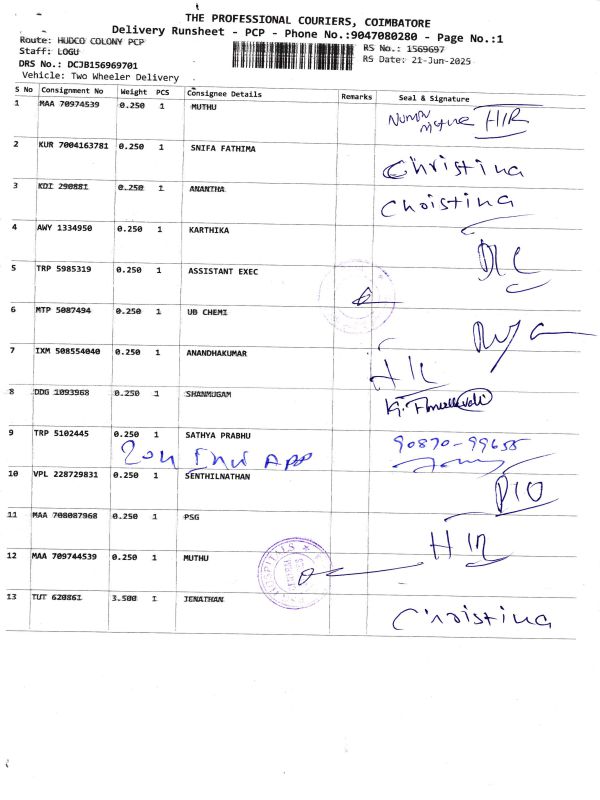 THE PROFESSIONAL COURIERS, COIMBATORE
Delivery Runsheet - PCP - Phone No.:9047080280 - Page No.:1
Route: HUDCO COLONY PCP
RS No.: 1569697
Staff: LOGU
RS Date: 21-Jun-2025
DRS No.: DCJB156969701
Vehicle: Two Wheeler Delivery
S No Consignment No Weight PCS Consignee Details Remarks Seal & Signature
1 MAA 70974539 0.250 1 MUTHU
H/R
2 KUR 7004163781 0.250 1 SNIFA FATHIMA
Christina
3 KDI 290881 0.250 1 ANANTHA
Christina
4 AWY 1334950 0.250 1 KARTHIKA
5 TRP 5985319 0.250 1 ASSISTANT EXEC
6 MTP 5087494 0.250 1 UB CHEMI
7 IXM 508554040 0.250 1 ANANDHAKUMAR
8 DDG 1093968 0.250 1 SHANMUGAM
9 TRP 5102445 0.250 1 SATHYA PRABHU
90870-99655
10 VPL 228729831 0.250 1 SENTHILNATHAN
11 MAA 708087968 0.250 1 PSG
12 MAA 709744539 0.250 1 MUTHU
HOSPITALS
13 TUT 620861 3.500 1 JENATHAN
Christina